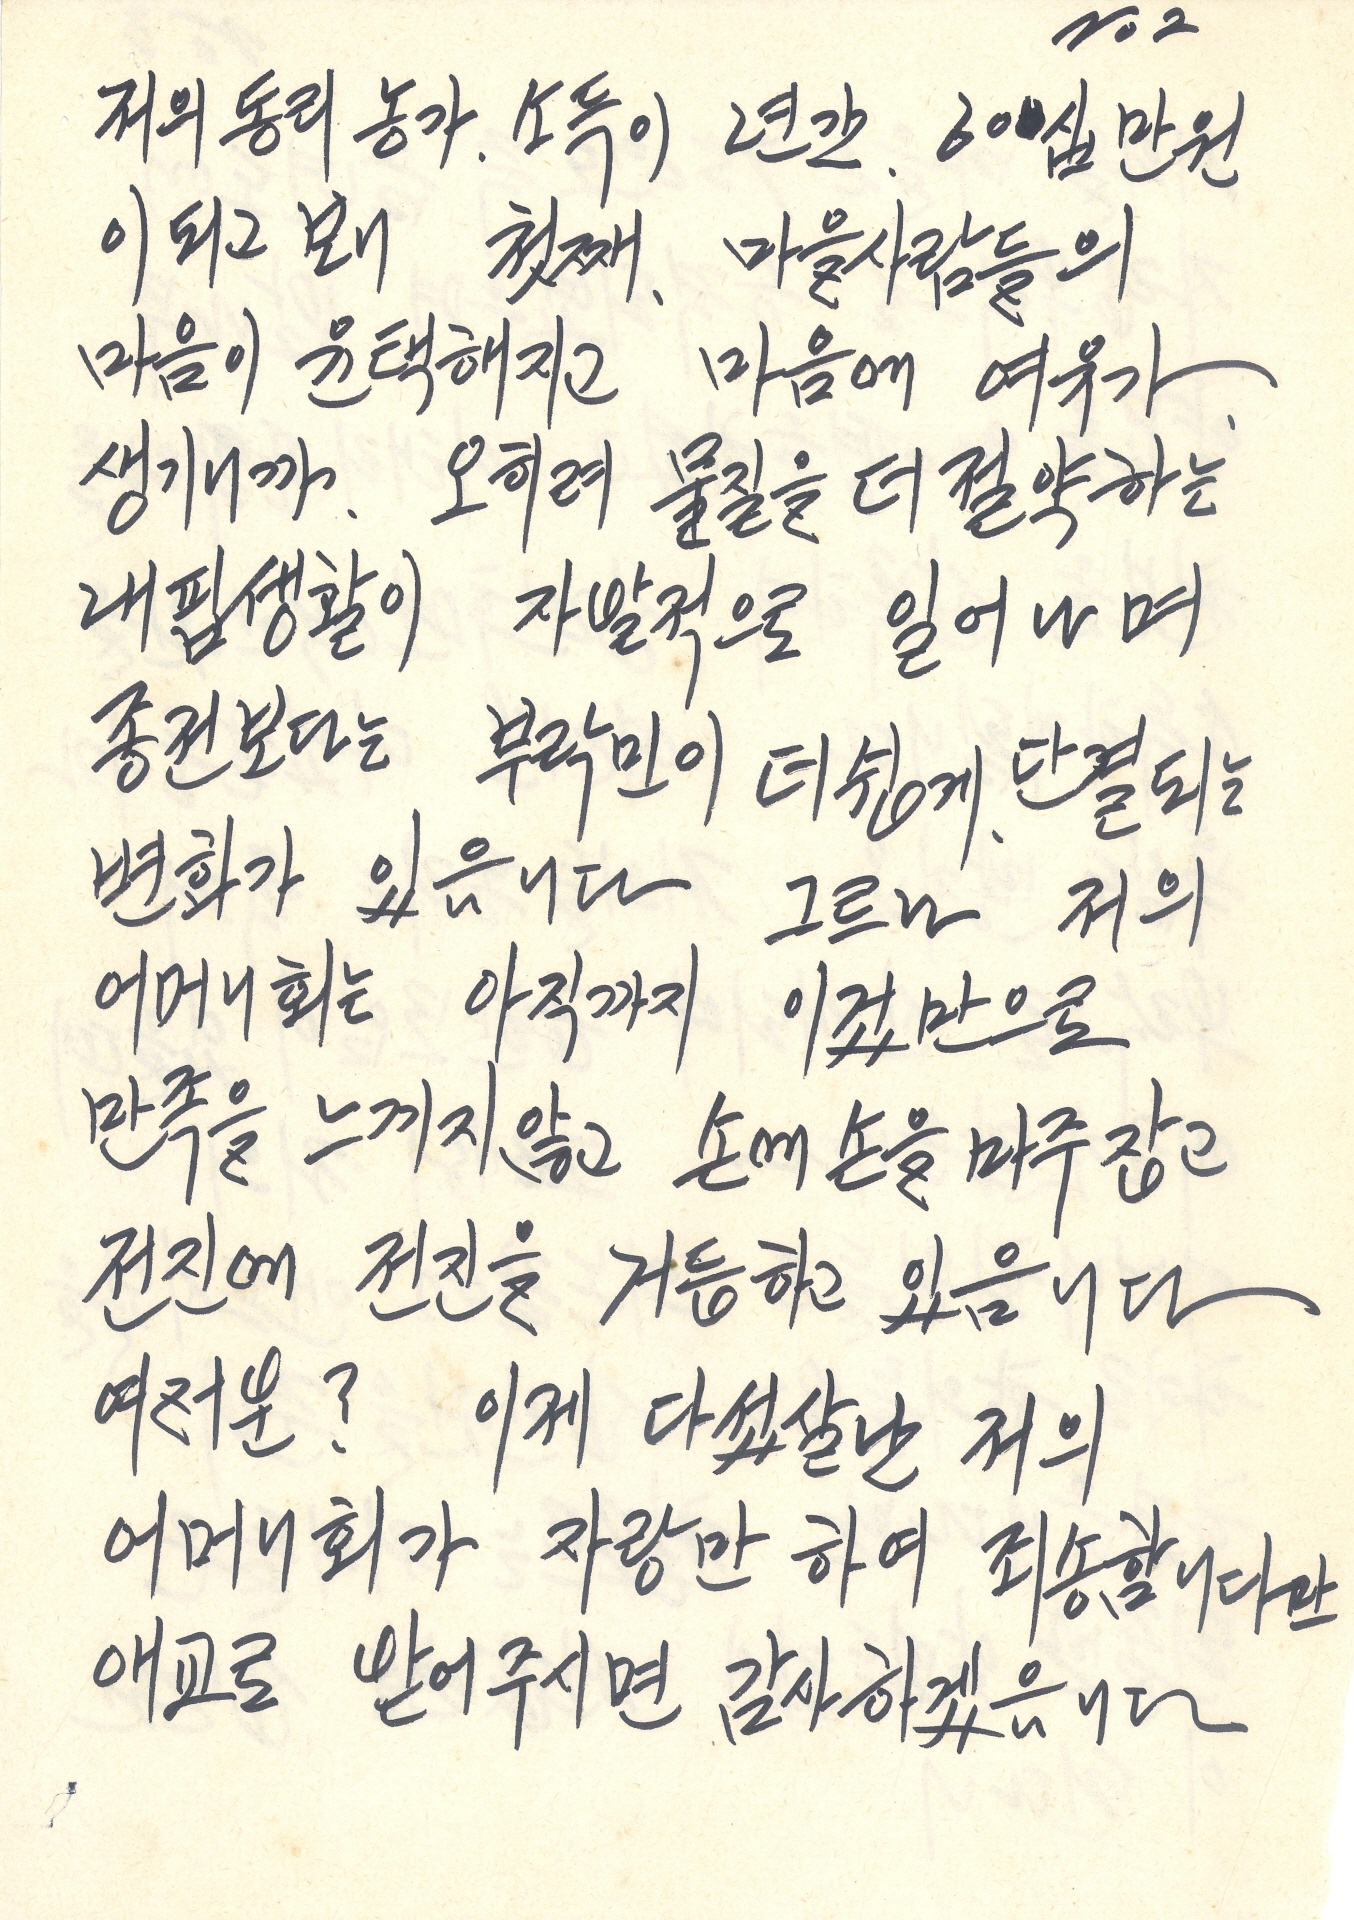 No 2
저의 동리 농가. 소득이 2년간. 60십만원
이 되고 보니 첫째. 마을사람들의
마음이 윤택해지고 마음에 여유가
생기니까. 오히려 물질을 더 절약하는
내핍생활이 자발적으로 일어나며
종전보다는 부락민이 더 쉽게. 단결되는
변화가 있읍니다 그르나 저의
어머니회는 아직까지 이것만으로
만족을 느끼지 않고 손에 손을 마주 잡고
전진에 전진을 거듭하고 있음니다
여러분? 이제 다섯살난 저의
어머니회가 자랑만 하여 죄송합니다만
애교로 받어주시면 감사하겠읍니다